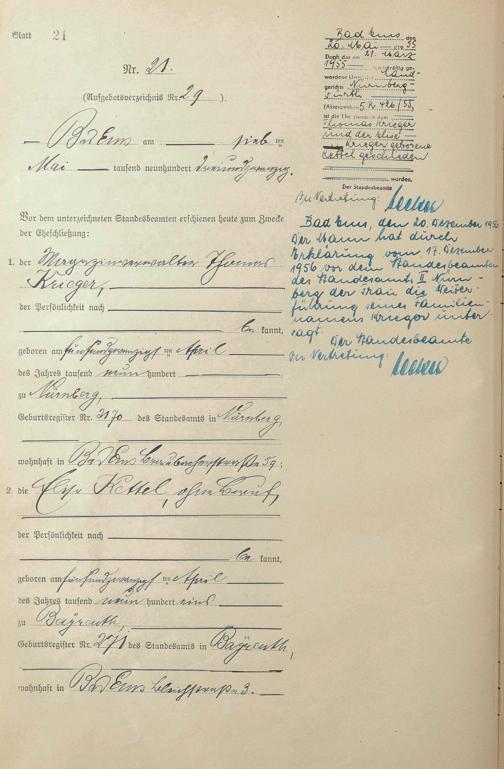 Blatt 21
Nr. 21.
(Aufgebotsverzeichnis Nr. 29 ).
Bad Ems am sieb ten
Mai tausend neunhundert dreiundzwanzig.
Vor dem unterzeichneten Standesbeamten erschienen heute zum Zwecke
der Eheschließung:
1. der Magazinverwalter Thomas
Krieger,
der Persönlichkeit nach
be kannt,
geboren am fünfundzwanzigsten April
des Jahres tausend neun hundert
zu Nürnberg,
Geburtsregister Nr. 2170 des Standesamts in Nürnberg,
wohnhaft in Bad Ems Braubacherstraße 59;
2. die Else Kettel, ohne Beruf,
der Persönlichkeit nach
be kannt,
geboren am fünfundzwanzigsten April
des Jahres tausend neun hundert eins
zu Bayreuth,
Geburtsregister Nr. 271 des Standesamts in Bayreuth,
wohnhaft in Bad Ems Bleichstraße 3.
Bad Ems den
20. Mai 1955
Durch das am 21. März
1955
wordene Land-
gericht Nürnberg-
Fürth
(Aktenzeichen 5.R 426/53)
ist die Ehe
Thomas Krieger
und der Else
Krieger geborene
Kettel geschieden
worden.
Der Standesbeamte
In Vertretung:
Bad Ems, den 20. Dezember 1956
Der Mann hat durch
Erklärung vom 17. Dezember
1956 vor dem Standesbeamten
des Standesamts II Nürn-
berg der Frau die Weiter-
führung seines Familien-
namens Krieger unter-
sagt.
Der Standesbeamte
In Vertretung: